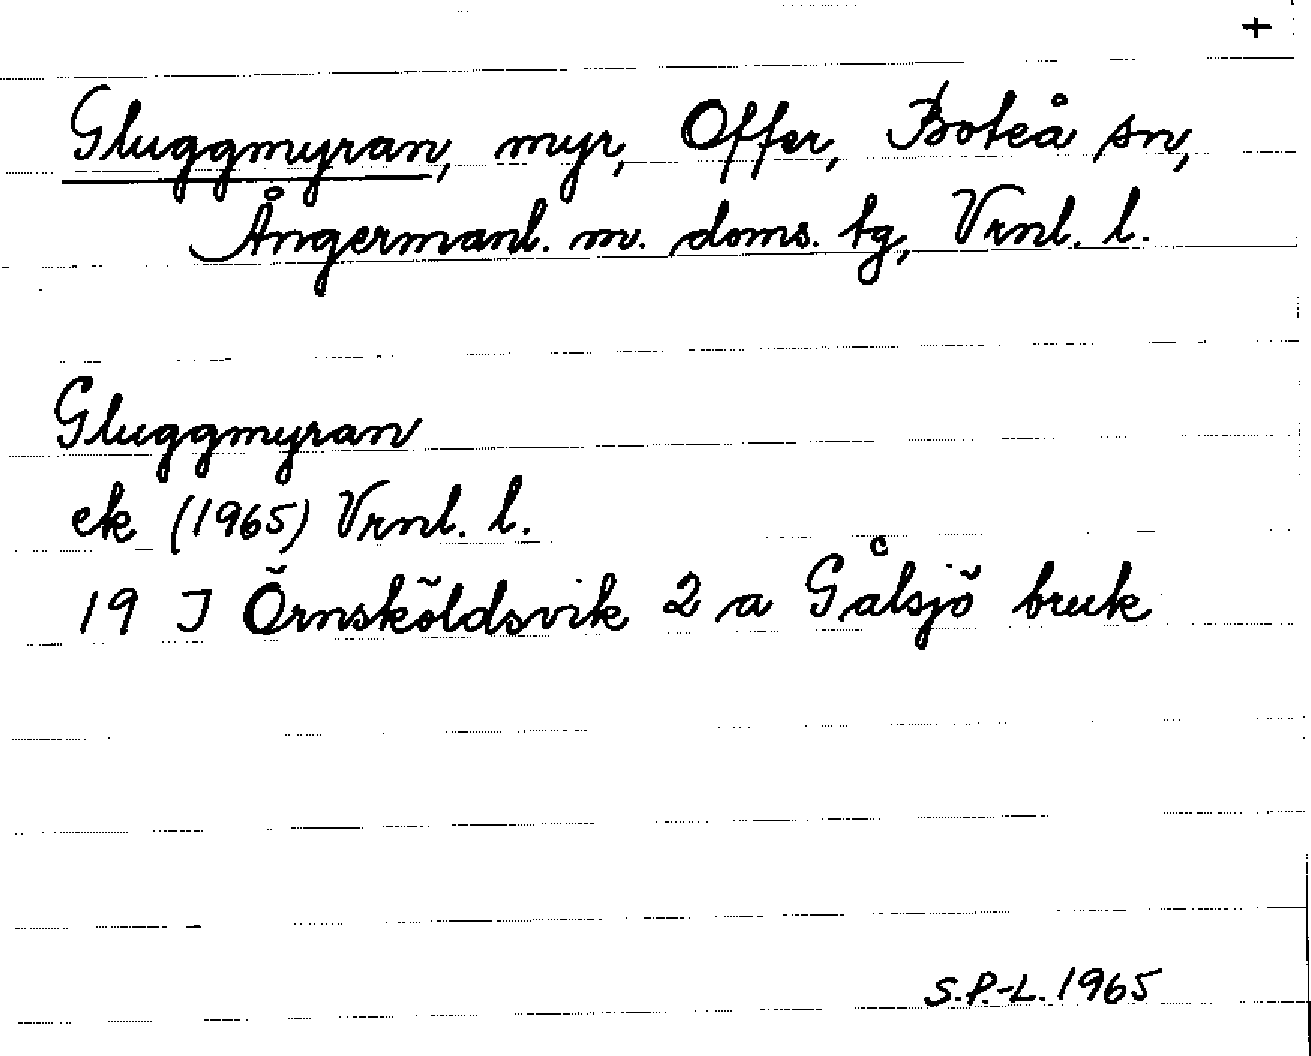 +
Gluggmyran, myr, Offer, Boteå sn,
Ångermanl. m. doms. tg, Vrnl. l.
Gluggmyran
ek (1965) Vrnl. l.
19 J Örnsköldsvik 2 a Gålsjö bruk
S.P.-L. 1965